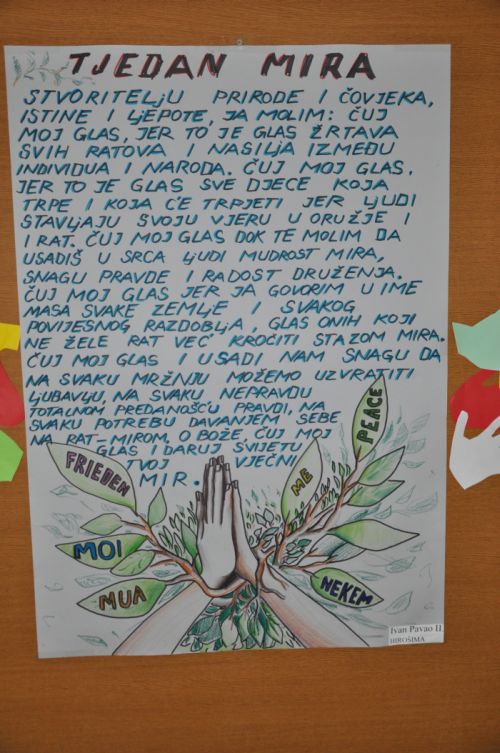 TJEDAN MIRA
STVORITELJU PRIRODE I ČOVJEKA,
ISTINE I LJEPOTE, JA MOLIM: ČUJ
MOJ GLAS, JER TO JE GLAS ŽRTAVA
SVIH RATOVA I NASILJA IZMEĐU
INDIVIDUA I NARODA. ČUJ MOJ GLAS,
JER TO JE GLAS SVE DJECE KOJA
TRPE I KOJA ĆE TRPJETI JER LJUDI
STAVLJAJU SVOJU VJERU U ORUŽJE I
I RAT. ČUJ MOJ GLAS DOK TE MOLIM DA
USADIŠ U SRCA LJUDI MUDROST MIRA,
SNAGU PRAVDE I RADOST DRUŽENJA.
ČUJ MOJ GLAS JER JA GOVORIM U IME
MASA SVAKE ZEMLJE I SVAKOG
POVIJESNOG RAZDOBLJA, GLAS ONIH KOJI
NE ŽELE RAT VEĆ KROČITI STAZOM MIRA.
ČUJ MOJ GLAS I USADI NAM SNAGU DA
NA SVAKU MRŽNJU MOŽEMO UZVRATITI
LJUBAVLJU, NA SVAKU NEPRAVDU
TOTALNOM PREDANOŠĆU PRAVDI, NA
SVAKU POTREBU DAVANJEM SEBE
NA RAT-MIROM, O BOŽE, ČUJ MOJ
GLAS I DARUJ SVIJETU
TVOJ VJEČNI
MIR.
PEACE
FRIEDEN
ME
MOI
MUA
NEKEM
Ivan Pavao II.
HIROŠIMA